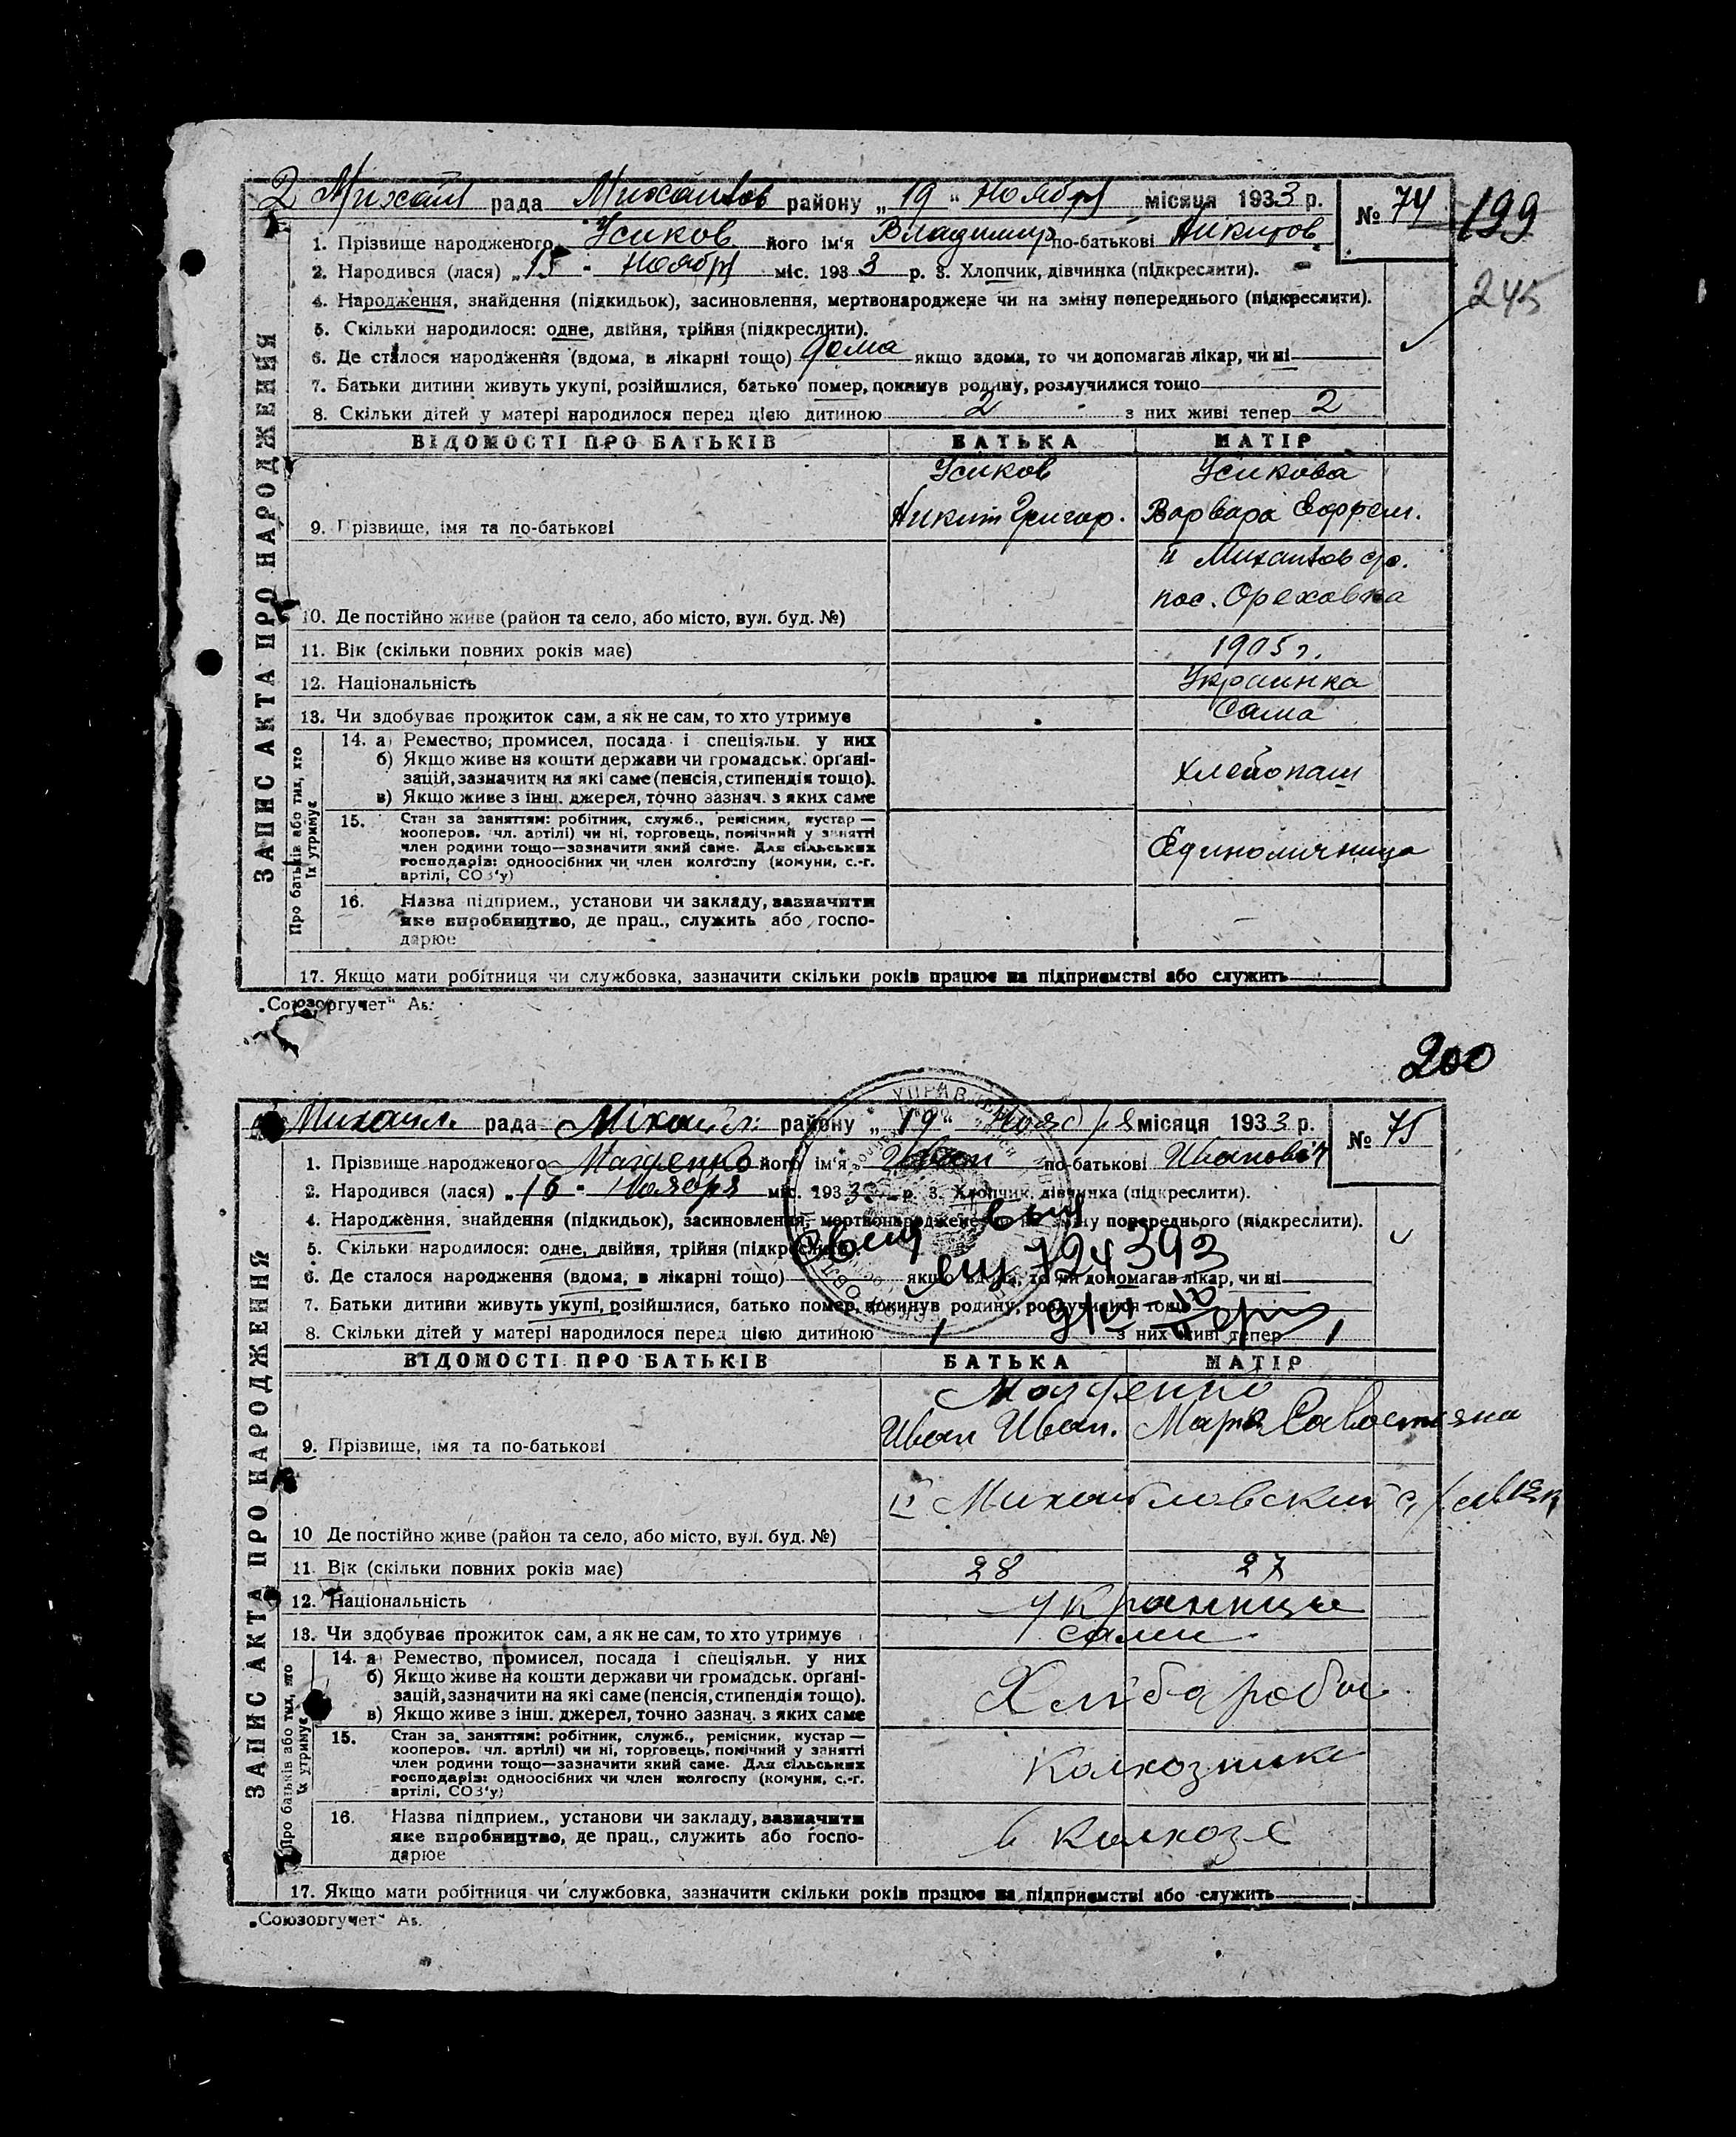 2 Михайл рада Михайлов району „19“ Ноября місяця 1933 р. № 74 199
1. Прізвище народженого Усиков його ім'я Владимир по-батькові Никитов
2. Народився (лася) „15 - Ноября міс. 1933 р. 3. Хлопчик, дівчинка (підкреслити).
245
4. Народження, знайдення (підкидьок), засиновлення, мертвонароджене чи на зміну попереднього (підкреслити).
5. Скільки народилося: одне, двійня, трійня (підкреслити).
6. Де сталося народження (вдома, в лікарні тощо) дома якщо вдома, то чи допомагав лікар, чи ні
7. Батьки дитини живуть укупі, розійшлися, батько помер, покинув родину, розлучилися тощо
8. Скільки дітей у матері народилося перед цією дитиною 2 з них живі тепер 2
ЗАПИС АКТА ПРО НАРОДЖЕННЯ
ВІДОМОСТІ ПРО БАТЬКІВ БАТЬКА МАТІР
Усиков Усикова
9. Прізвище, імя та по-батькові Никит Григор. Варвара Ефрем.
ІІ Михайлов с/р.
пос. Ореховка
10. Де постійно живе (район та село, або місто, вул. буд. №)
11. Вік (скільки повних років має) 1905 г.
12. Національність Украинка
13. Чи здобуває прожиток сам, а як не сам, то хто утримує Сама
Про батьків або тих, хто їх утримує
14. а) Ремество, промисел, посада і спеціяльн. у них
б) Якщо живе на кошти держави чи громадськ. орґані-
зацій, зазначити на які саме (пенсія, стипендія тощо).
в) Якщо живе з інш. джерел, точно зазнач. з яких саме
хлебопаш
15. Стан за заняттям: робітник, служб., ремісник, кустар —
кооперов. (чл. артілі) чи ні, торговець, помічний у занятті
член родини тощо—зазначити який саме. Для сільських
господарів: одноосібних чи член колгоспу (комуни, с.-г.
артілі, СОЗ'у)
Единоличница
16. Назва підприєм., установи чи закладу, зазначити
яке виробництво, де прац., служить або госпо-
дарює
17. Якщо мати робітниця чи службовка, зазначити скільки років працює на підприємстві або служить
„Союзоргучет“ Ав.
200
Михайл. рада Міхайл. району „19“ Ноября місяця 1933 р. № 75
1. Прізвище народженого його ім'я Иван по-батькові Иванович
2. Народився (лася) „16 - Ноября міс. 1933 р. 3. Хлопчик, дівчинка (підкреслити).
4. Народження, знайдення (підкидьок), засиновлення, мертвонароджене чи на зміну попереднього (підкреслити).
5. Скільки народилося: одне, двійня, трійня (підкреслити).
724393
6. Де сталося народження (вдома, в лікарні тощо) якщо вдома, то чи допомагав лікар, чи ні
7. Батьки дитини живуть укупі, розійшлися, батько помер, покинув родину, розлучилися тощо
8. Скільки дітей у матері народилося перед цією дитиною 1 з них живі тепер 1
ЗАПИС АКТА ПРО НАРОДЖЕННЯ
ВІДОМОСТІ ПРО БАТЬКІВ БАТЬКА МАТІР
9. Прізвище, імя та по-батькові Иван Иван. Мария Савостяна
ІІ Михайловский с/
10 Де постійно живе (район та село, або місто, вул. буд. №)
11. Вік (скільки повних років має) 28 27
12. Національність Украинцы
13. Чи здобуває прожиток сам, а як не сам, то хто утримує сами
Про батьків або тих, хто їх утримує
14. а) Ремество, промисел, посада і спеціяльн. у них
б) Якщо живе на кошти держави чи громадськ. орґані-
зацій, зазначити на які саме (пенсія, стипендія тощо).
в) Якщо живе з інш. джерел, точно зазнач. з яких саме
Хлібароби
15. Стан за заняттям: робітник, служб., ремісник, кустар —
кооперов. (чл. артілі) чи ні, торговець, помічний у занятті
член родини тощо—зазначити який саме. Для сільських
господарів: одноосібних чи член колгоспу (комуни, с.-г.
артілі, СОЗ'у)
Колхозники
16. Назва підприєм., установи чи закладу, зазначити
яке виробництво, де прац., служить або госпо-
дарює
в колхозе
17. Якщо мати робітниця чи службовка, зазначити скільки років працює на підприємстві або служить
„Союзоргучет“ Ав.